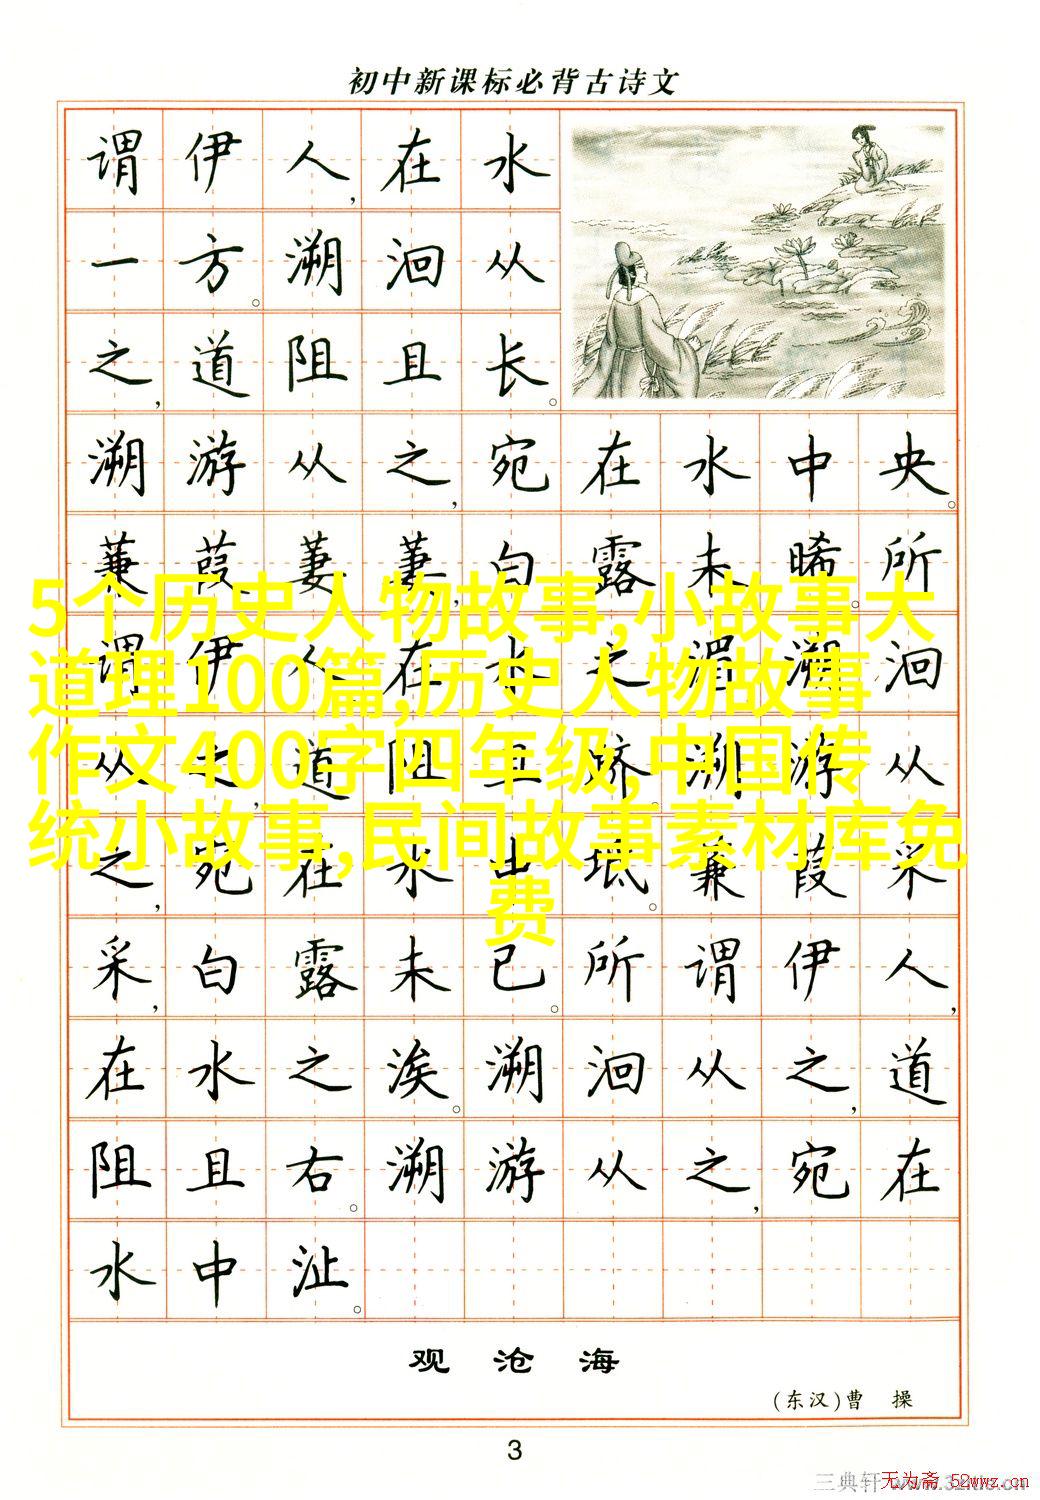 初中新课标必背古诗文
谓伊人,在水
一方。溯洄从
之,道阻且长。
溯游从之,宛在水中央。
蒹葭萋萋,白露未晞。所
谓伊人,在水之湄。溯洄
从之,道阻且跻。溯游从
之,宛在水中坻。蒹葭采
采,白露未已。所谓伊人,
在水之涘。溯洄从之,道
阻且右。溯游从之,宛在
水中沚。
5个历史人物故事,小故事大
道理100篇,历史人物故事
作文400字四年级,中国传
统小故事,民间故事素材库免
费
观沧海
(东汉)曹操
3
三典轩
无为斋 52wwz.cn